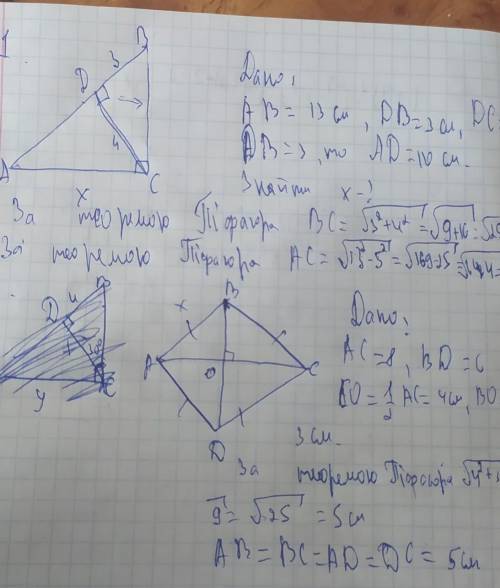 1
B
3
D
4
A
C
x
Дано:
AB = 13 см, DB = 3 см, DC
DB = 3, то AD = 10 см.
Знайти x - ?
За теоремою Піфагора BC = √3²+4² = √9+16 = √25
За теоремою Піфагора AC = √13²-5² = √169-25 = √144 =
D 4
y
B
x
A
O
C
D
Дано:
AC = 8, BD = 6
CO = 1/2 AC = 4 см, BO
3 см.
За теоремою Піфагора √4²+3
9 = √25 = 5 см
AB = BC = AD = DC = 5 см